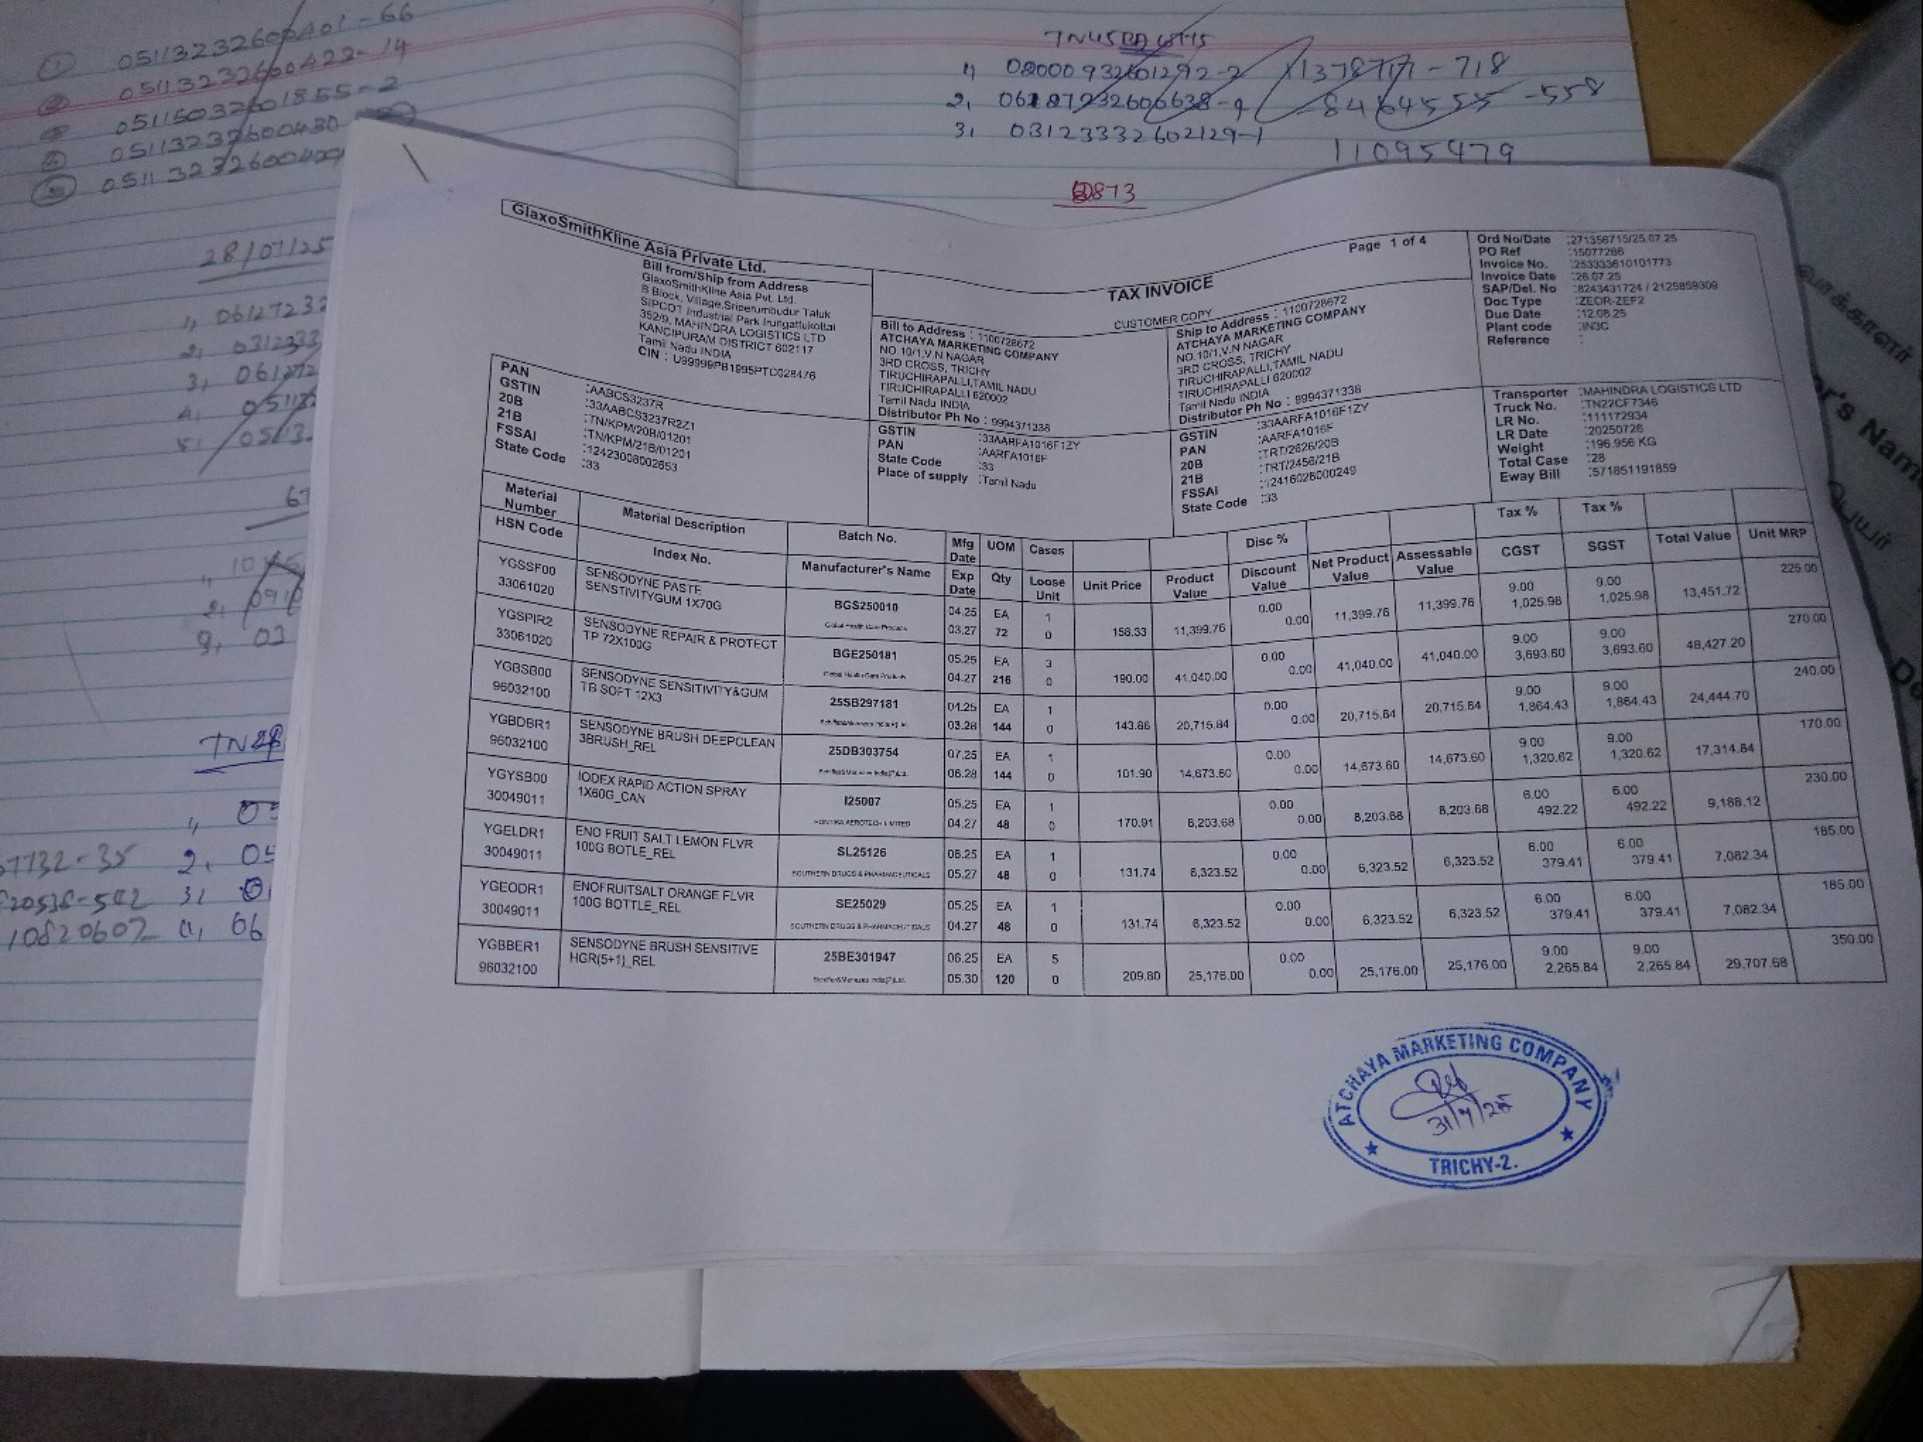 05113232600401-66
05113232600422-14
05115032601855-2
05113232600430
28/07/25
TN45BA6115
1, 08000932601292-2
3, 03123332602129-1
1378717-718
8464555-558
11095479
10820607
GlaxoSmithKline Asia Private Ltd.
Bill from/Ship from Address
GlaxoSmithKline Asia Pvt. Ltd.
B Block, Village,Sriperumbudur Taluk
SIPCOT Industrial Park Irungattukottai
352/9, MAHINDRA LOGISTICS LTD
KANCIPURAM DISTRICT 602117
Tamil Nadu INDIA
CIN : U99999PB1995PTC028476
TAX INVOICE
CUSTOMER COPY
Page 1 of 4
Bill to Address : 1100728672
ATCHAYA MARKETING COMPANY
NO.10/1,V.N NAGAR
3RD CROSS, TRICHY
TIRUCHIRAPALLI,TAMIL NADU
TIRUCHIRAPALLI 620002
Tamil Nadu INDIA
Distributor Ph No : 9994371338
Ship to Address : 1100728672
ATCHAYA MARKETING COMPANY
NO.10/1,V.N NAGAR
3RD CROSS, TRICHY
TIRUCHIRAPALLI,TAMIL NADU
TIRUCHIRAPALLI 620002
Tamil Nadu INDIA
Distributor Ph No : 9994371338
Ord No/Date :271356715/25.07.25
PO Ref :15077286
Invoice No. :253333610101773
Invoice Date :26.07.25
SAP/Del. No :8243431724 / 2125859309
Doc Type :ZEOR-ZEF2
Due Date :12.08.25
Plant code :IN3C
Reference :
PAN :AABCS3237R
GSTIN :33AABCS3237R2Z1
20B :TN/KPM/20B/01201
21B :TN/KPM/21B/01201
FSSAI :12423008002653
State Code :33
GSTIN :33AARFA1016F1ZY
PAN :AARFA1016F
State Code :33
Place of supply :Tamil Nadu
GSTIN :33AARFA1016F1ZY
PAN :AARFA1016F
20B :TRT/2626/20B
21B :TRT/2456/21B
FSSAI :12416026000249
State Code :33
Transporter :MAHINDRA LOGISTICS LTD
Truck No. :TN22CF7346
LR No. :111172934
LR Date :20250726
Weight :196.956 KG
Total Case :28
Eway Bill :571851191859
Material Number Material Description Batch No. Mfg Date UOM Cases Disc % Tax % Tax %
HSN Code Index No. Manufacturer's Name Exp Date Qty Loose Unit Unit Price Product Value Discount Value Net Product Value Assessable Value CGST SGST Total Value Unit MRP
YGSSF00 SENSODYNE PASTE BGS250010 04.25 EA 1 0.00 9.00 9.00 225.00
33061020 SENSTIVITYGUM 1X70G 03.27 72 0 158.33 11,399.76 0.00 11,399.76 11,399.76 1,025.98 1,025.98 13,451.72
YGSPIR2 SENSODYNE REPAIR & PROTECT BGE250181 05.25 EA 3 0.00 9.00 9.00 270.00
33061020 TP 72X100G 04.27 216 0 190.00 41,040.00 0.00 41,040.00 41,040.00 3,693.60 3,693.60 48,427.20
YGBSB00 SENSODYNE SENSITIVITY&GUM 25SB297181 04.25 EA 1 0.00 9.00 9.00 240.00
96032100 TB SOFT 12X3 03.28 144 0 143.86 20,715.84 0.00 20,715.84 20,715.84 1,864.43 1,864.43 24,444.70
YGBDBR1 SENSODYNE BRUSH DEEPCLEAN 25DB303754 07.25 EA 1 0.00 9.00 9.00 170.00
96032100 3BRUSH_REL 06.28 144 0 101.90 14,673.60 0.00 14,673.60 14,673.60 1,320.62 1,320.62 17,314.84
YGYSB00 IODEX RAPID ACTION SPRAY I25007 05.25 EA 1 0.00 6.00 6.00 230.00
30049011 1X60G_CAN 04.27 48 0 170.91 8,203.68 0.00 8,203.68 8,203.68 492.22 492.22 9,188.12
YGELDR1 ENO FRUIT SALT LEMON FLVR SL25126 06.25 EA 1 0.00 6.00 6.00 185.00
30049011 100G BOTLE_REL SOUTHERN DRUGS & PHARMACEUTICALS 05.27 48 0 131.74 6,323.52 0.00 6,323.52 6,323.52 379.41 379.41 7,082.34
YGEODR1 ENOFRUITSALT ORANGE FLVR SE25029 05.25 EA 1 0.00 6.00 6.00 185.00
30049011 100G BOTTLE_REL SOUTHERN DRUGS & PHARMACEUTICALS 04.27 48 0 131.74 6,323.52 0.00 6,323.52 6,323.52 379.41 379.41 7,082.34
YGBBER1 SENSODYNE BRUSH SENSITIVE 25BE301947 06.25 EA 5 0.00 9.00 9.00 350.00
96032100 HGR(5+1)_REL 05.30 120 0 209.80 25,176.00 0.00 25,176.00 25,176.00 2,265.84 2,265.84 29,707.68
ATCHAYA MARKETING COMPANY
31/7/25
TRICHY-2.